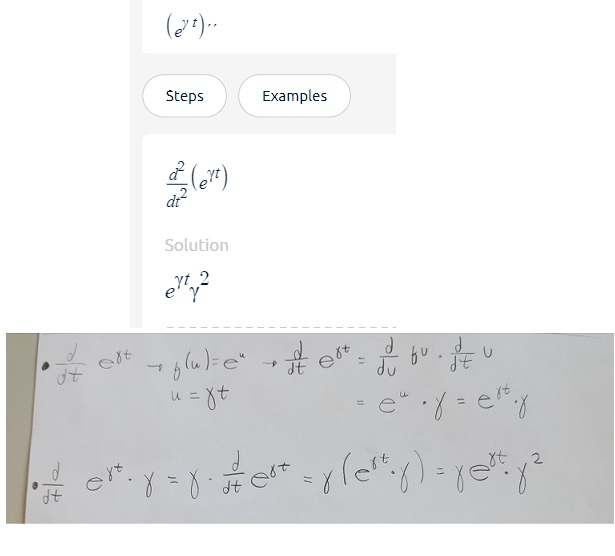 (e^γ t)··
Steps Examples
d²/dt² (e^γt)
Solution
e^γt γ²
• d/dt e^γt → f(u)=e^u → d/dt e^γt = d/du fu · d/dt u
u = γt = e^u · γ = e^γt · γ
• d/dt e^γt · γ = γ · d/dt e^γt = γ(e^γt · γ) = γe^γt · γ²